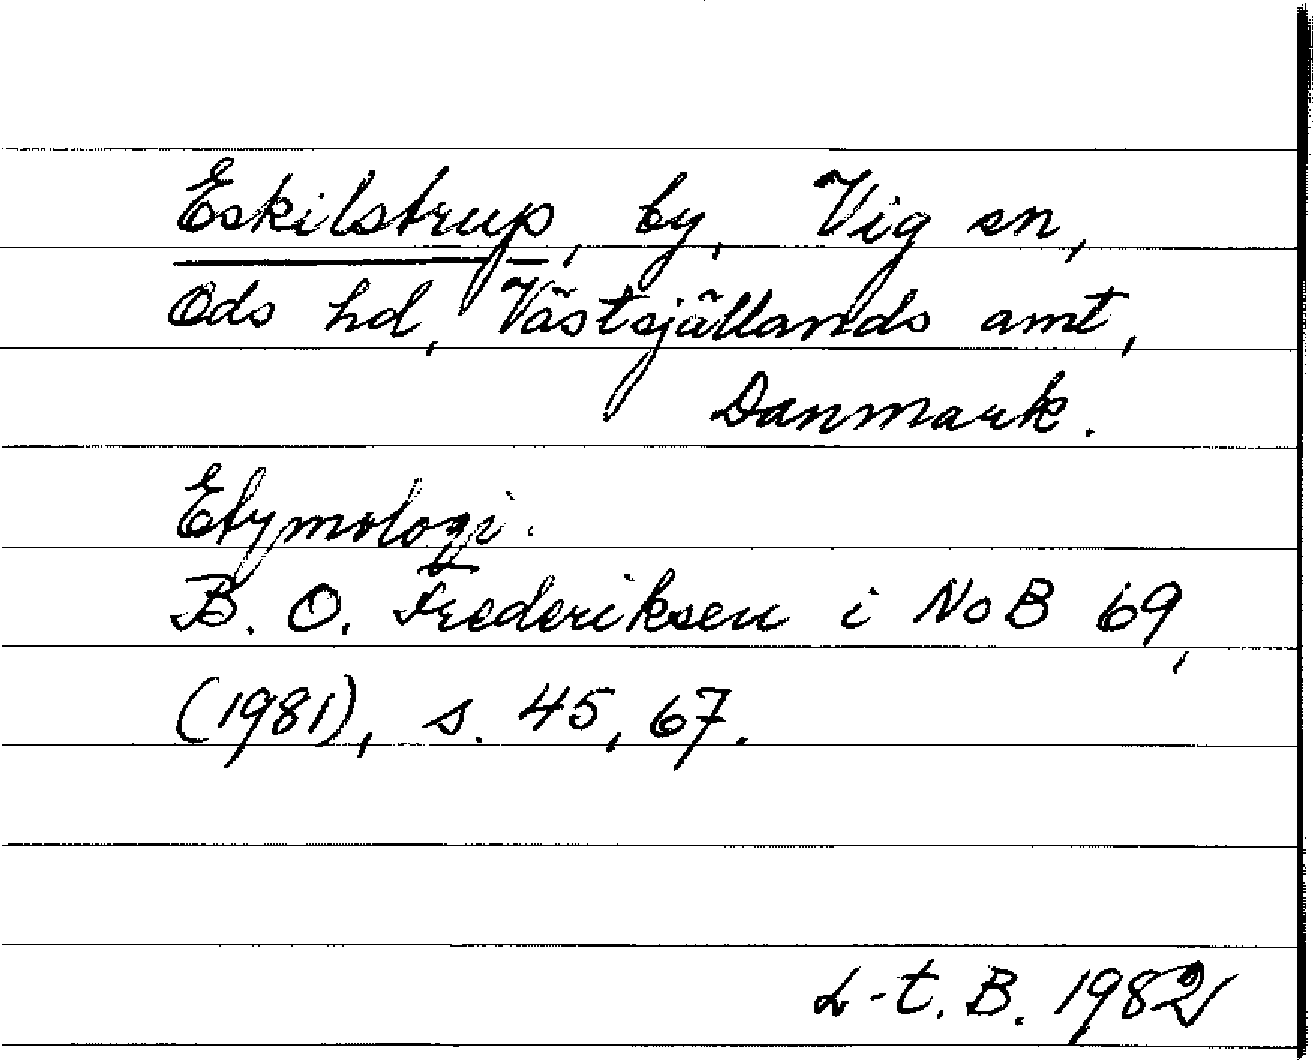 Eskilstrup, by, Vig sn,
Ods hd, Västsjällands amt,
Danmark.
Etymologi.
B. O. Frederiksen i NoB 69,
(1981), s. 45, 67.
L-t. B. 1982